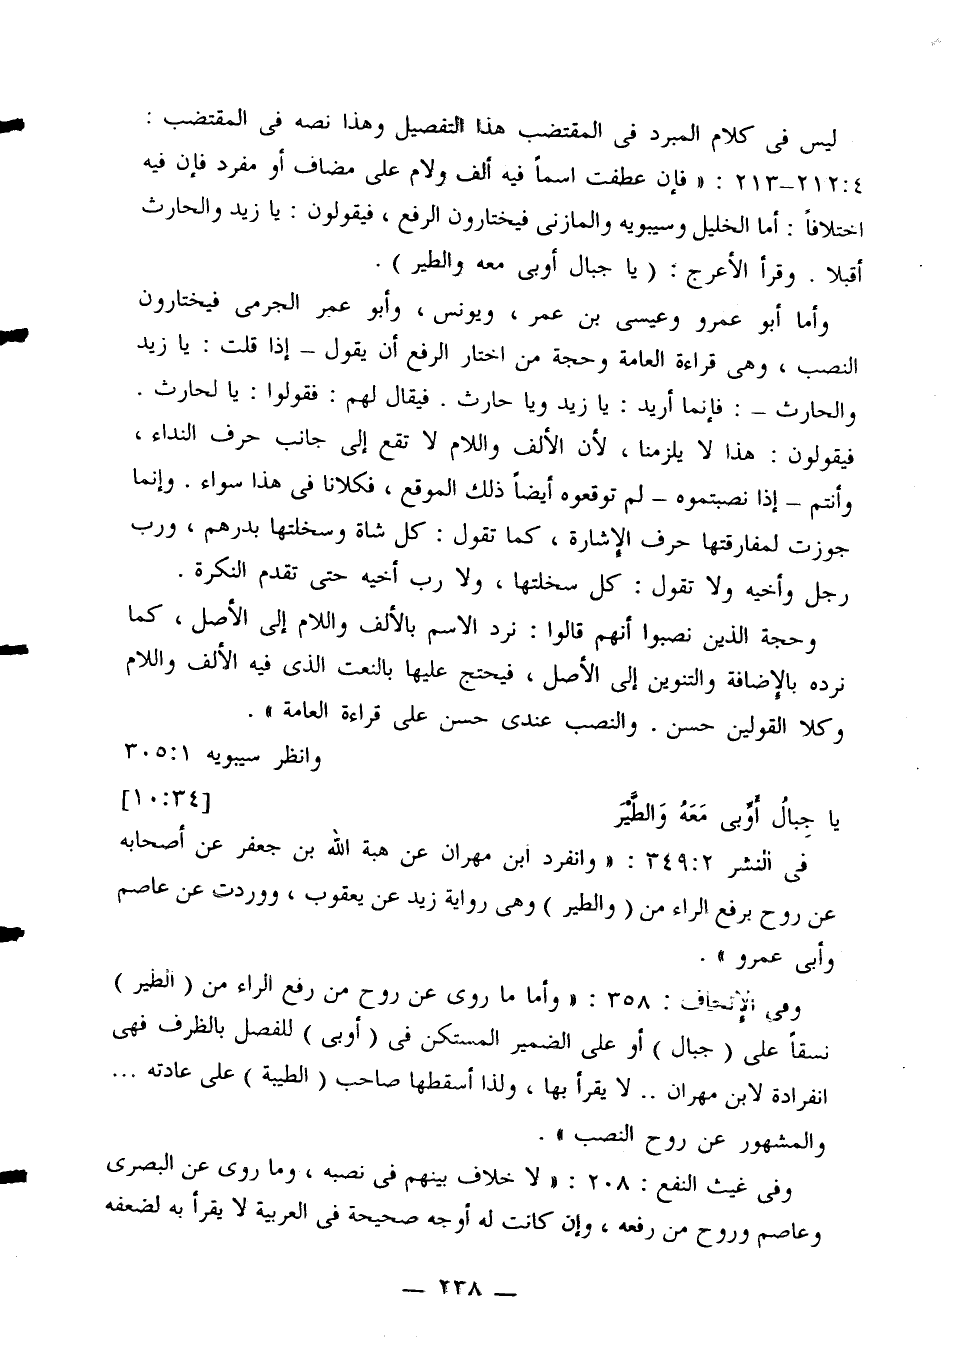 ليس فى كلام المبرد فى المقتضب هذا التفصيل وهذا نصه فى المقتضب :
٤:٢١٢–٢١٣ : « فإن عطفت اسماً فيه ألف ولام على مضاف أو مفرد فإن فيه
اختلافاً : أما الخليل وسيبويه والمازنى فيختارون الرفع ، فيقولون : يا زيد والحارث
أقبلا . وقرأ الأعرج : ( يا جبال أوبى معه والطير ) .
وأما أبو عمرو وعيسى بن عمر ، ويونس ، وأبو عمر الجرمى فيختارون
النصب ، وهى قراءة العامة وحجة من اختار الرفع أن يقول – إذا قلت : يا زيد
والحارث – : فإنما أريد : يا زيد ويا حارث . فيقال لهم : فقولوا : يا لحارث .
فيقولون : هذا لا يلزمنا ، لأن الألف واللام لا تقع إلى جانب حرف النداء ،
وأنتم – إذا نصبتموه – لم توقعوه أيضاً ذلك الموقع ، فكلانا فى هذا سواء . وإنما
جوزت لمفارقتها حرف الإشارة ، كما تقول : كل شاة وسخلتها بدرهم ، ورب
رجل وأخيه ولا تقول : كل سخلتها ، ولا رب أخيه حتى تقدم النكرة .
وحجة الذين نصبوا أنهم قالوا : نرد الاسم بالألف واللام إلى الأصل ، كما
نرده بالإضافة والتنوين إلى الأصل ، فيحتج عليها بالنعت الذى فيه الألف واللام
وكلا القولين حسن . والنصب عندى حسن على قراءة العامة » .
وانظر سيبويه ١:٣٠٥
يا جِبالُ أَوِّبى مَعَهُ وَالطَّيْرَ [٣٤:١٠]
فى النشر ٢:٣٤٩ : « وانفرد ابن مهران عن هبة الله بن جعفر عن أصحابه
عن روح برفع الراء من ( والطير ) وهى رواية زيد عن يعقوب ، ووردت عن عاصم
وأبى عمرو » .
وفى الإتحاف : ٣٥٨ : « وأما ما روى عن روح من رفع الراء من ( الطير )
نسقاً على ( جبال ) أو على الضمير المستكن فى ( أوبى ) للفصل بالظرف فهى
انفرادة لابن مهران .. لا يقرأ بها ، ولذا أسقطها صاحب ( الطيبة ) على عادته ...
والمشهور عن روح النصب » .
وفى غيث النفع : ٢٠٨ : « لا خلاف بينهم فى نصبه ، وما روى عن البصرى
وعاصم وروح من رفعه ، وإن كانت له أوجه صحيحة فى العربية لا يقرأ به لضعفه
– ٢٣٨ –